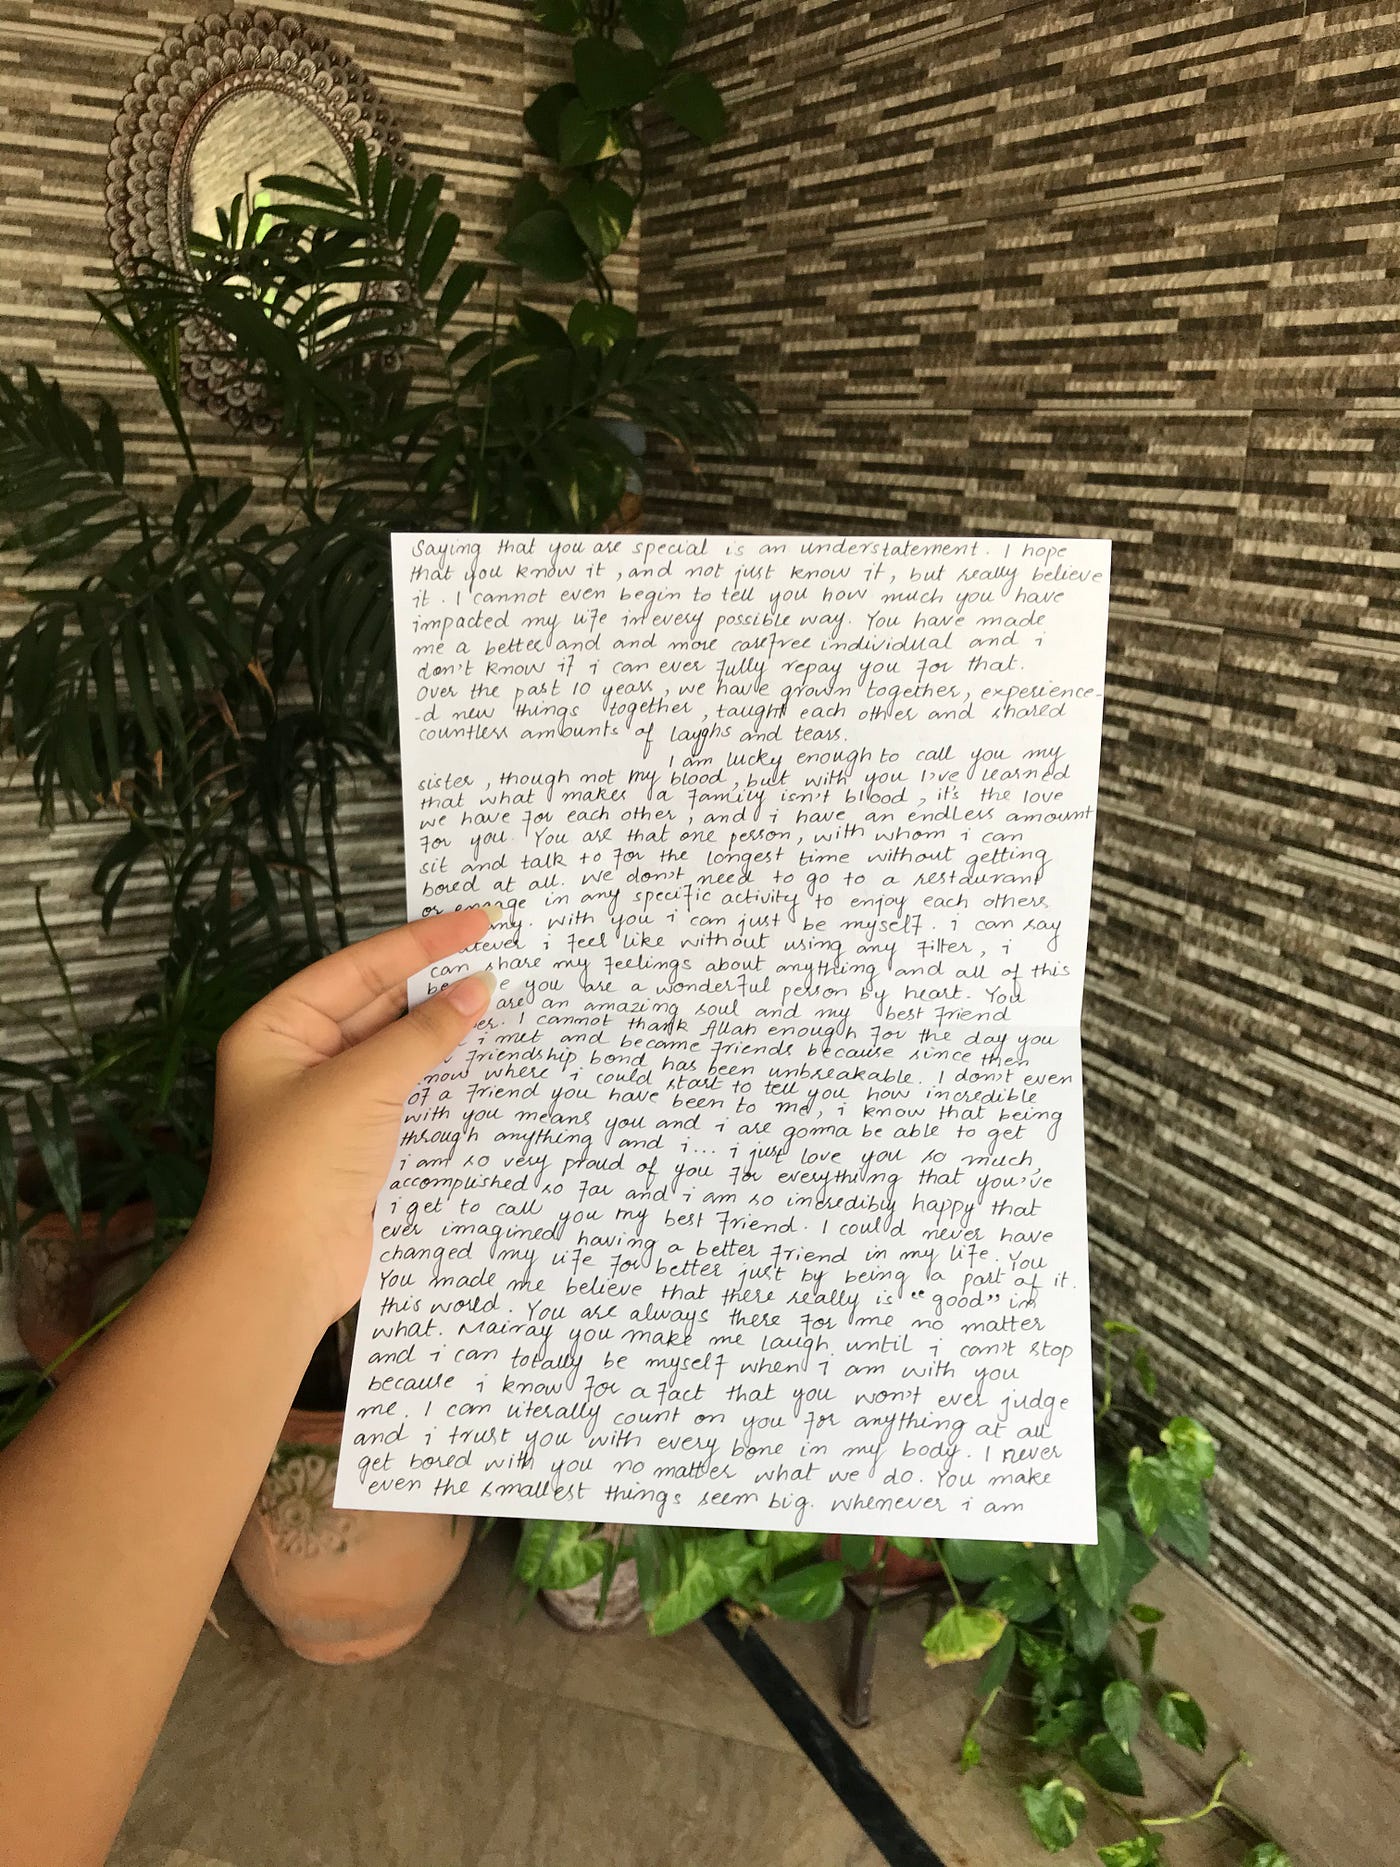 Saying that you are special is an understatement. I hope
that you know it, and not just know it, but really believe
it. I cannot even begin to tell you how much you have
impacted my life in every possible way. You have made
me a better and and more carefree individual and i
don't know if i can ever fully repay you for that.
Over the past 10 years, we have grown together, experience-
-d new things together, taught each other and shared
countless amounts of laughs and tears.
I am lucky enough to call you my
sister, though not my blood, but with you I've learned
that what makes a family isn't blood, it's the love
we have for each other, and i have an endless amount
for you. You are that one person, with whom i can
sit and talk to for the longest time without getting
bored at all. We don't need to go to a restaurant
or engage in any specific activity to enjoy each others
any. With you i can just be myself. i can say
atever i feel like without using any filter, i
can share my feelings about anything and all of this
be e you are a wonderful person by heart. You
are an amazing soul and my best friend
er. I cannot thank Allah enough for the day you
i met and became friends because since then
friendship bond has been unbreakable. I don't even
know where i could start to tell you how incredible
of a friend you have been to me, i know that being
with you means you and i are gonna be able to get
through anything and i... i just love you so much,
i am so very proud of you for everything that you've
accomplished so far and i am so incredibly happy that
i get to call you my best friend. I could never have
ever imagined having a better friend in my life. You
changed my life for better just by being a part of it.
You made me believe that there really is "good" in
this world. You are always there for me no matter
what. Mairay you make me laugh until i can't stop
and i can totally be myself when i am with you
because i know for a fact that you won't ever judge
me. I can literally count on you for anything at all
and i trust you with every bone in my body. I never
get bored with you no matter what we do. You make
even the smallest things seem big. Whenever i am